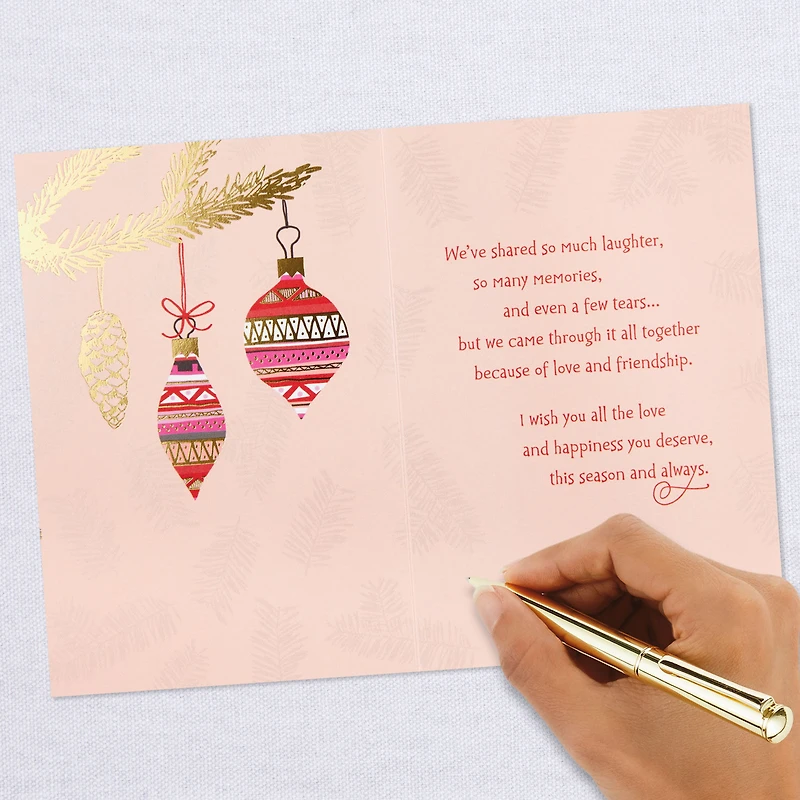 We've shared so much laughter,
so many memories,
and even a few tears...
but we came through it all together
because of love and friendship.
I wish you all the love
and happiness you deserve,
this season and always.